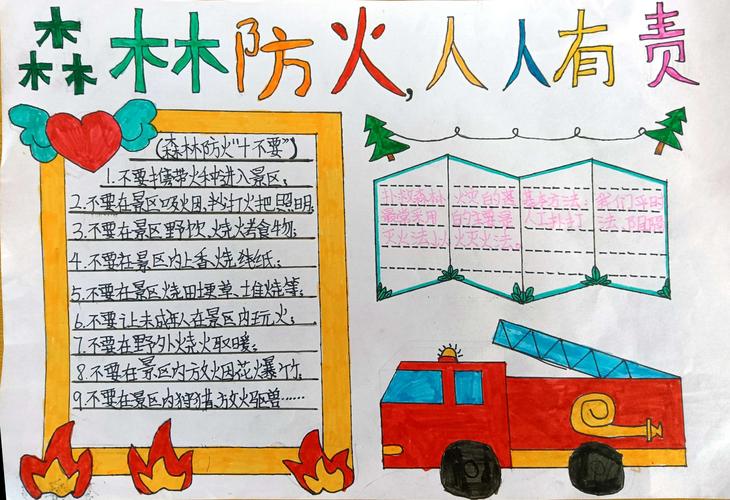 森林防火,人人有责
(森林防火"十不要")
1.不要携带火种进入景区;
2.不要在景区吸烟,打火把照明;
3.不要在景区野炊、烧烤食物;
4.不要在景区内上香烧纸;
5.不要在景区烧田埂草、堆烧等;
6.不要让未成年人在景区内玩火;
7.不要在野外烧火取暖;
8.不要在景区内放火因花爆竹;
9.不要在景区内狩猎、放火驱兽……
扑救森林 火灾的 基本方法:我们平时
最常采用 的主要 人工扑打 法、阻隔
灭火法、以 火灭火法。